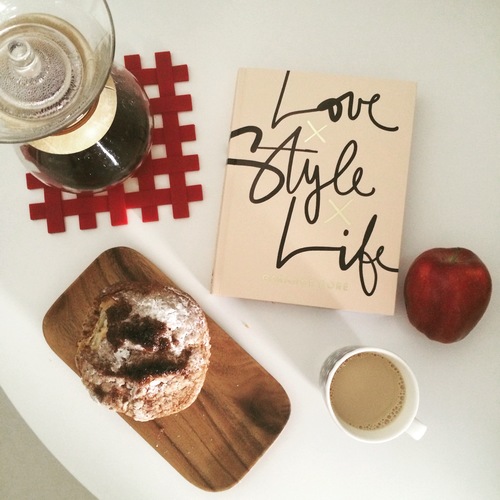 Love
×
Style
×
Life